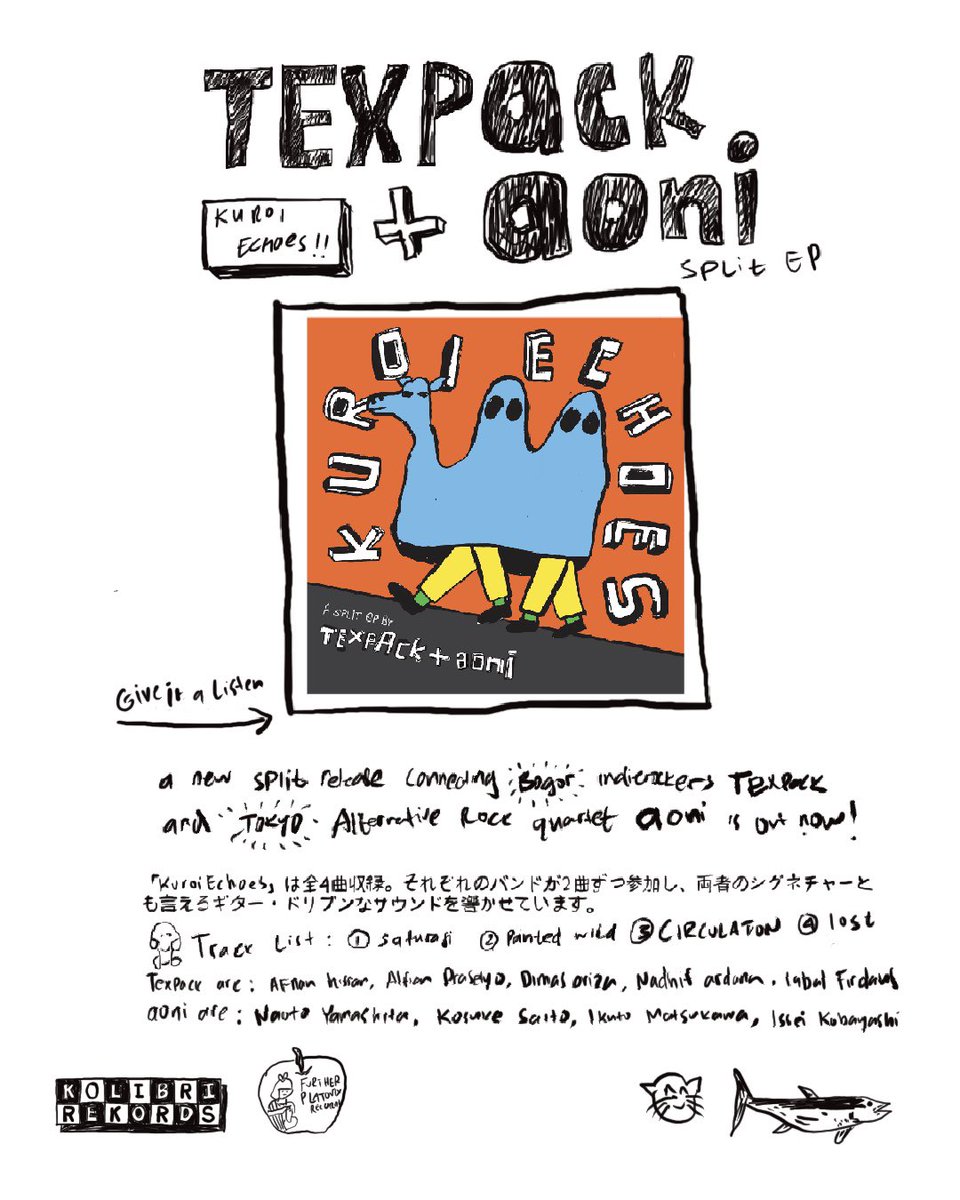 TEXPACK
KUROI
ECHOES!!
+ aoni
SPLIT EP
KUROI ECHOES
A SPLIT EP BY
TEXPACK + aoni
Give it a Listen
a new split release connecting Bogor indierockers TEXPACK
and TOKYO Alternative Rock quartet aoni is out now!
「Kuroi Echoes」は全4曲収録。それぞれのバンドが2曲ずつ参加し、両者のシグネチャーと
も言えるギター・ドリブンなサウンドを響かせています。
Track List: ① saturasi ② Painted wild ③ CIRCULATION ④ lost
Texpack are: Afnan hissan, Alfian Prasetyo, Dimas ariza, Nadhif ardana, Iqbal Firdaus
aoni are: Naoto Yamashita, Kosuke Saito, Ikuto Matsukawa, Issei Kobayashi
KOLIBRI
REKORDS
FURTHER
PLATONIX
RECORDS